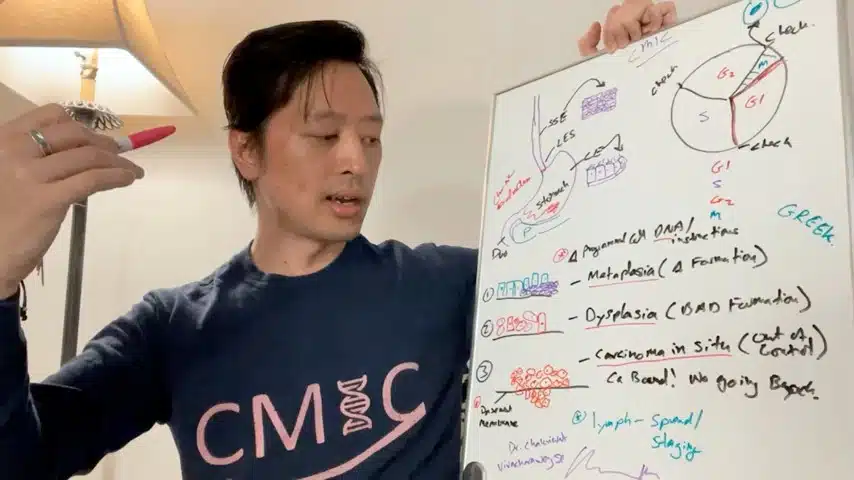 CMIC
check.
M
G2
G1
S
check
check
G1
S
G2
M
GREEK.
SSE
LES
CE
Stomach
P
Duo
* Δ Programmed Cell DNA/
instructions
① – Metaplasia (Δ Formation)
② – Dysplasia (BAD Formation)
③ – Carcinoma in Situ (Out of
Control)
Ca Bound! No going Back.
Basement
Membrane
* Lymph – Spread/
Staging
Dr. Chakrit
CMIC